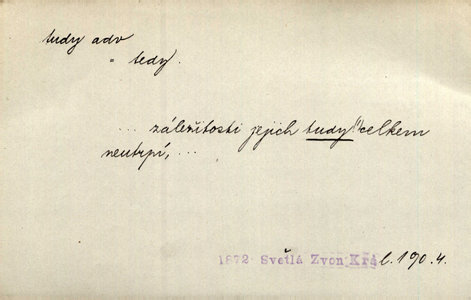 tudy adv
" tedy.
... záležitosti jejich tudy!! celkem
neutrpí, ...
1872 Světlá Zvon Král. 190. 4.